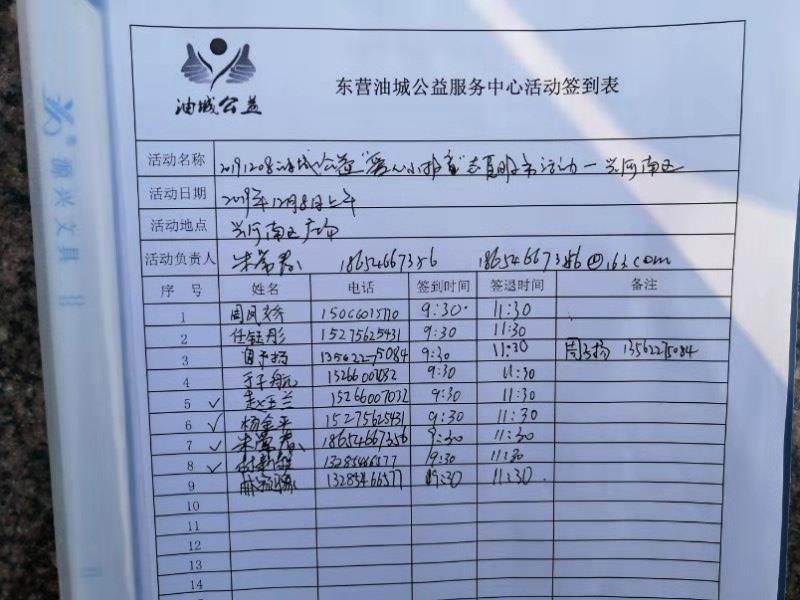 源兴文具
油城公益
东营油城公益服务中心活动签到表
活动名称 20191208油城公益"爱心小邮童"志愿服务活动—兴河南区
活动日期 2019年12月8日上午
活动地点 兴河南区广场
活动负责人 18654667356 18654667356@163.com
序号 姓名 电话 签到时间 签退时间 备注
1 9:30 11:30
2 任钰彤 15275625431 9:30 11:30
3 周予扬 13562275084 9:30 11:30 周予扬 13562275084
4 于子航 15266007032 9:30 11:30
5 ✓ 赵玉兰 15266007032 9:30 11:30
6 ✓ 杨金平 15275625431 9:30 11:30
7 ✓ 18654667356 9:30 11:30
8 ✓ 13285466577 9:30 11:30
9 13285466577 9:30 11:30
10
11
12
13
14